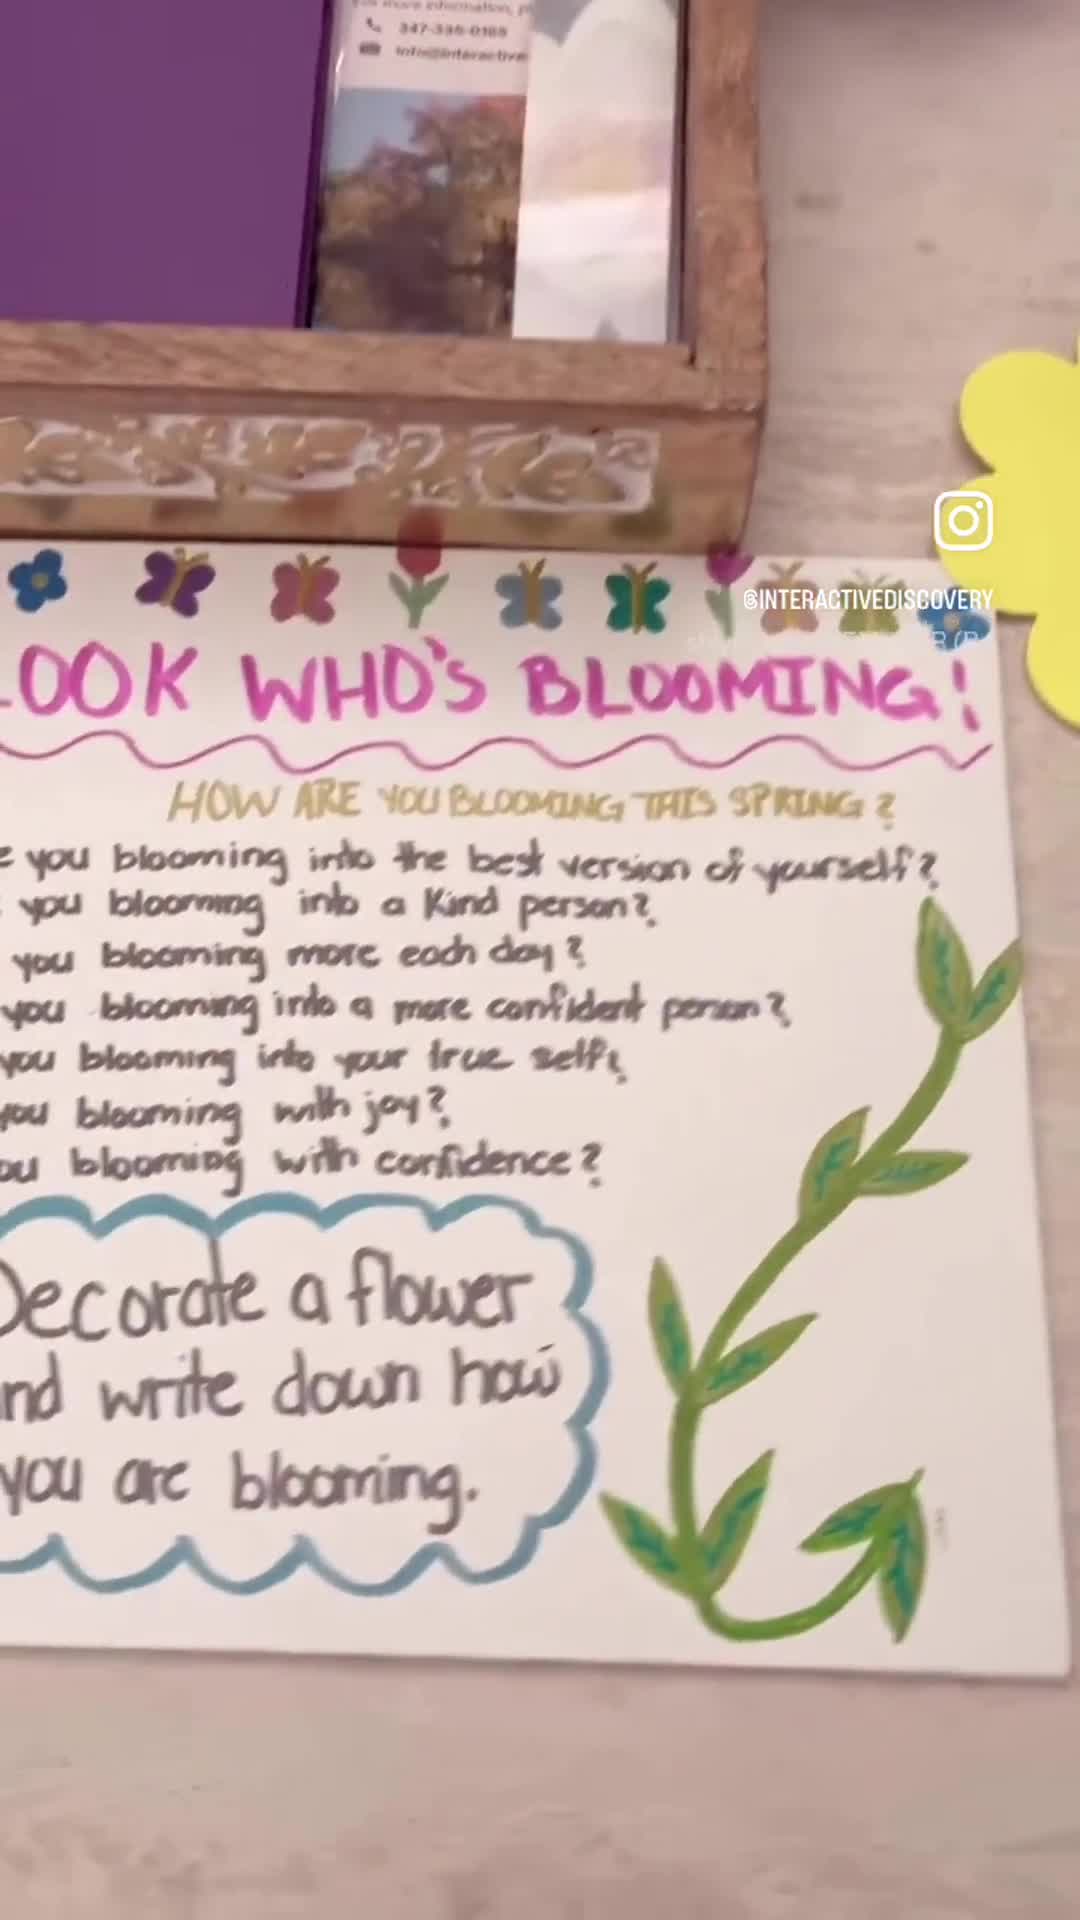 347-335-0185
info@interactive
@INTERACTIVEDISCOVERY
LOOK WHO'S BLOOMING!
HOW ARE YOU BLOOMING THIS SPRING?
e you blooming into the best version of yourself?
you blooming into a kind person?
you blooming more each day?
you blooming into a more confident person?
you blooming into your true self?
you blooming with joy?
ou blooming with confidence?
Decorate a flower
nd write down how
you are blooming.